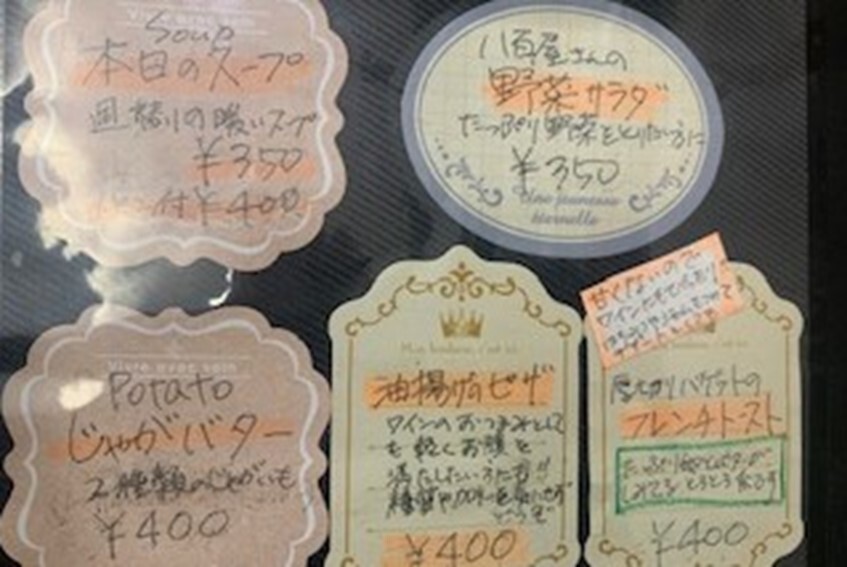 Soup
本日のスープ
週替りの暖いスープ
¥350
パン付¥400
八百屋さんの
野菜サラダ
たっぷり野菜をとりたい方に
¥350
Une jeunesse
éternelle
Vivre avec soin
Potato
じゃがバター
2種類のじゃがいも
¥400
油揚げのピザ
ワインのおつまみとして
も軽くお腹を
満たしたい方にも!!
糖質やカロリーを気にせず
どうぞ
¥400
甘くないので
ワインにも
厚切りバゲットの
フレンチトースト
¥400